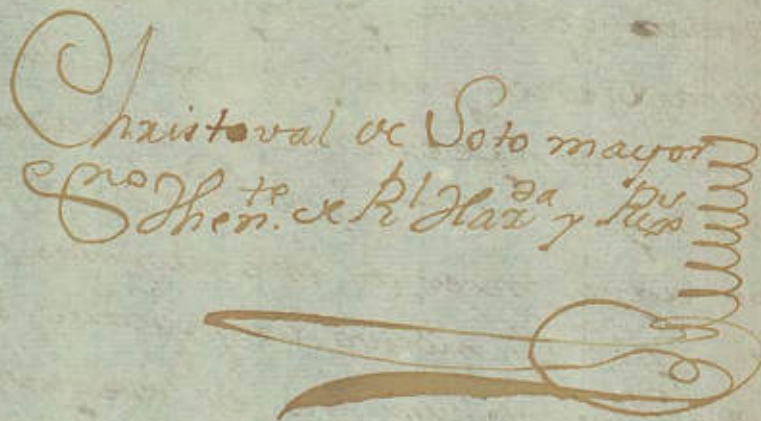 Christoval de Soto mayor
Esno Thente. de Rl Hazda y